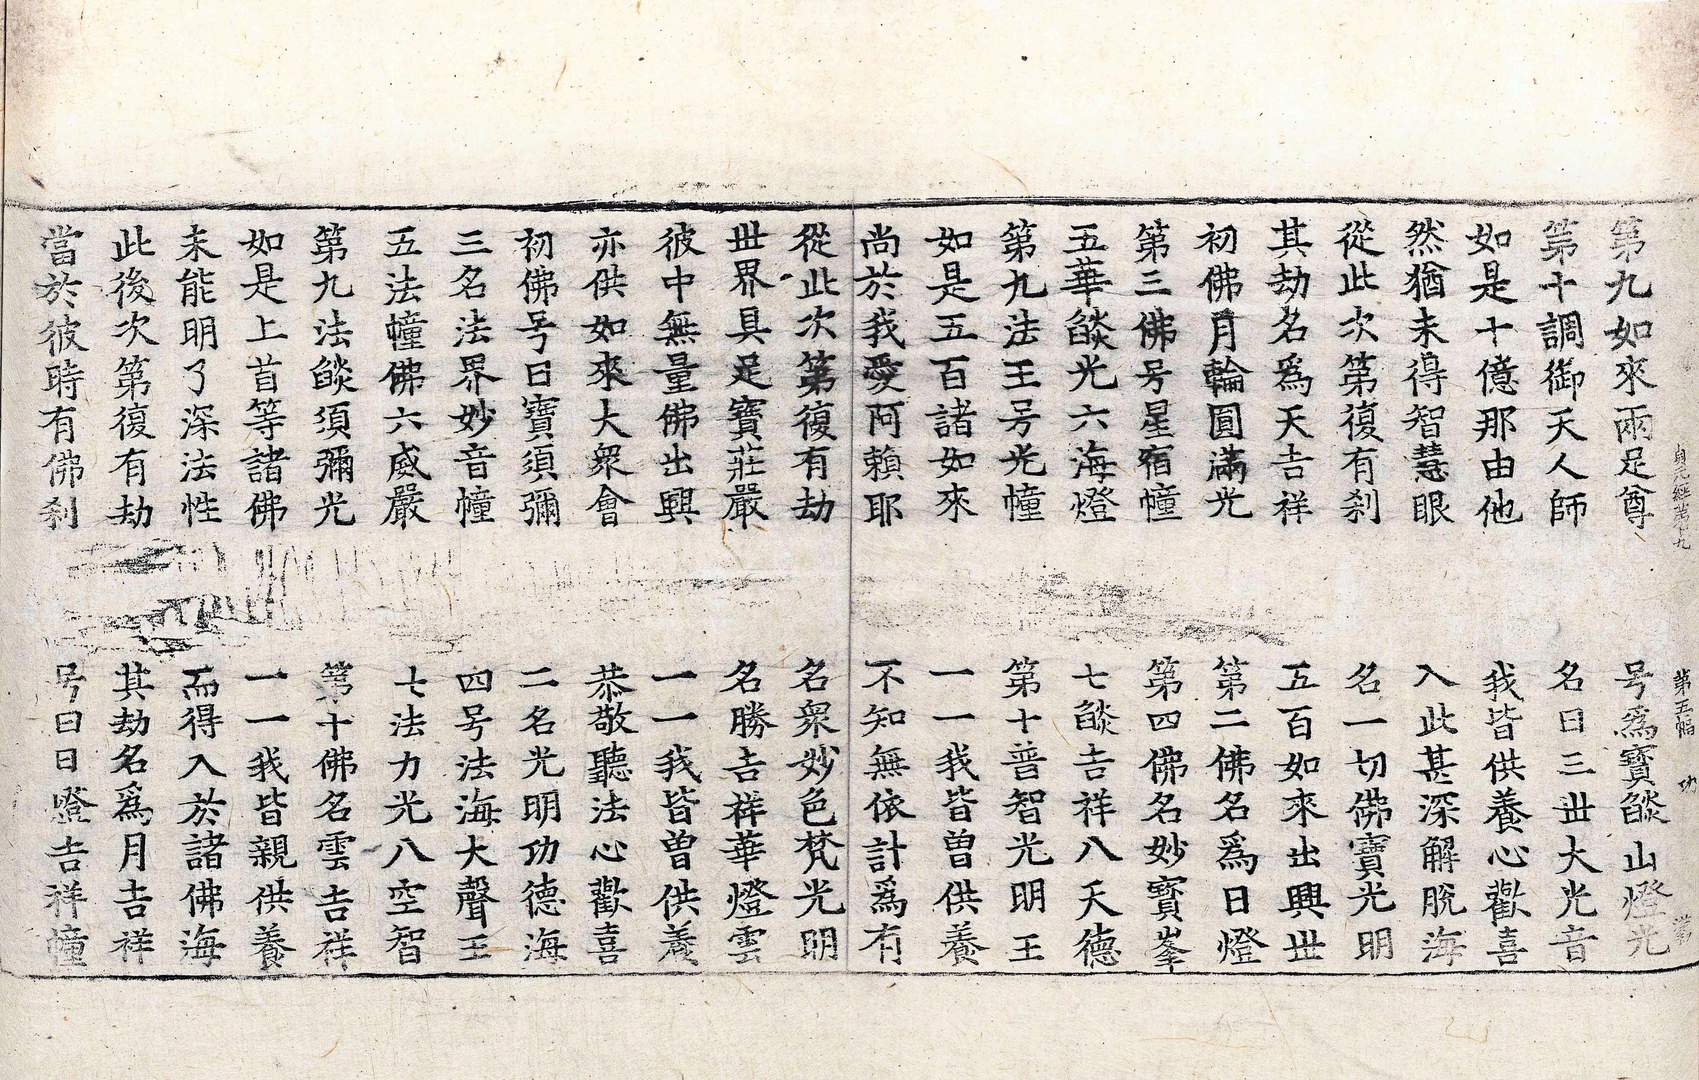 貞元經第十九 第五幅 功
第九如來兩足尊 号爲寶燄山燈光
第十調御天人師 名曰三世大光音
如是十億那由他 我皆供養心歡喜
然猶未得智慧眼 入此甚深解脫海
從此次第復有刹 名一切佛寶光明
其劫名爲天吉祥 五百如來出興世
初佛月輪圓滿光 第二佛名爲日燈
第三佛号星宿幢 第四佛名妙寶峯
五華燄光六海燈 七燄吉祥八天德
第九法王号光幢 第十普智光明王
如是五百諸如來 一一我皆曾供養
尚於我愛阿賴耶 不知無依計爲有
從此次第復有劫 名衆妙色梵光明
世界具足寶莊嚴 名勝吉祥華燈雲
彼中無量佛出興 一一我皆曾供養
亦供如來大衆會 恭敬聽法心歡喜
初佛号曰寶須彌 二名光明功德海
三名法界妙音幢 四号法海大聲王
五法幢佛六威嚴 七法力光八空智
第九法燄須彌光 第十佛名雲吉祥
如是上首等諸佛 一一我皆親供養
未能明了深法性 而得入於諸佛海
此後次第復有劫 其劫名爲月吉祥
當於彼時有佛刹 号曰日燈吉祥幢